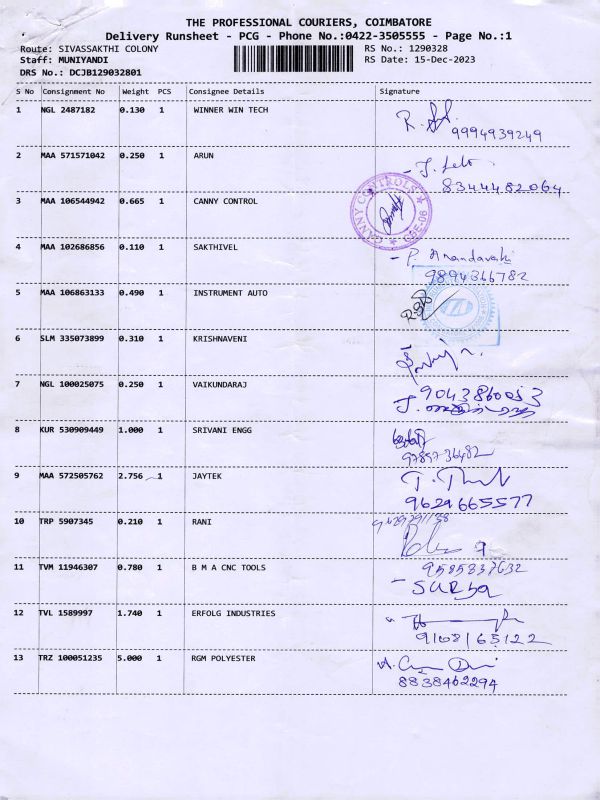 THE PROFESSIONAL COURIERS, COIMBATORE
Delivery Runsheet - PCG - Phone No.:0422-3505555 - Page No.:1
Route: SIVASSAKTHI COLONY RS No.: 1290328
Staff: MUNIYANDI RS Date: 15-Dec-2023
DRS No.: DCJB129032801
S No Consignment No Weight PCS Consignee Details Signature
1 NGL 2487182 0.130 1 WINNER WIN TECH
9994939249
2 MAA 571571042 0.250 1 ARUN
8344482064
3 MAA 106544942 0.665 1 CANNY CONTROL
CANNY CONTROLS CBE-06
4 MAA 102686856 0.110 1 SAKTHIVEL
9894366782
5 MAA 106863133 0.490 1 INSTRUMENT AUTO
6 SLM 335073899 0.310 1 KRISHNAVENI
7 NGL 100025075 0.250 1 VAIKUNDARAJ
8 KUR 530909449 1.000 1 SRIVANI ENGG
9 MAA 572505762 2.756 1 JAYTEK
9629665577
10 TRP 5907345 0.210 1 RANI
11 TVM 11946307 0.780 1 B M A CNC TOOLS
9585837632
SURYA
12 TVL 1589997 1.740 1 ERFOLG INDUSTRIES
9168165122
13 TRZ 100051235 5.000 1 RGM POLYESTER
8838462294